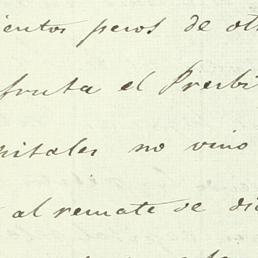 ientos pesos de ot
fruta el Presbi
pitales no vino
al remate de di